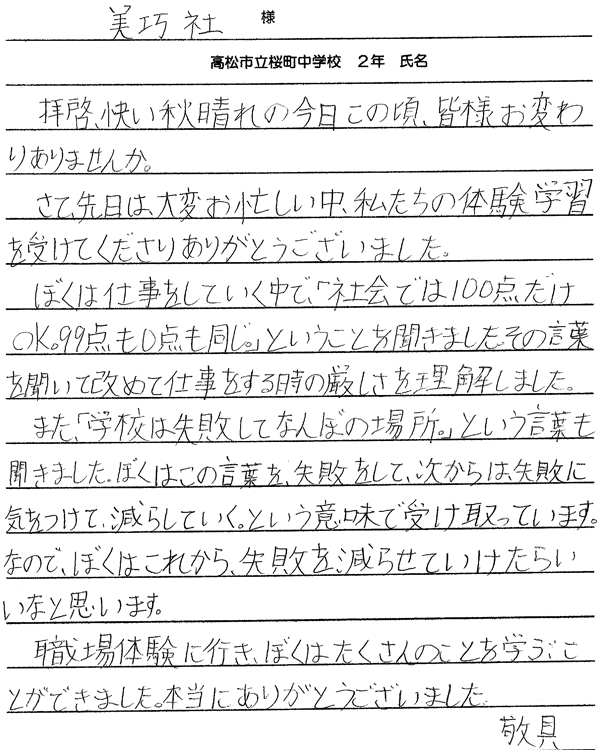 美巧社 様
高松市立桜町中学校 2年 氏名
拝啓、快い秋晴れの今日この頃、皆様お変わ
りありませんか。
さて、先日は、大変お忙しい中、私たちの体験学習
を受けてくださりありがとうございました。
ぼくは仕事をしていく中で、「社会では100点だけ
OK。99点も0点も同じ。」ということを聞きました。その言葉
を聞いて改めて仕事をする時の厳しさを理解しました。
また、「学校は失敗してなんぼの場所。」という言葉も
聞きました。ぼくはこの言葉を、失敗をして、次からは、失敗に
気をつけて、減らしていく。という意味で受け取っています。
なので、ぼくはこれから、失敗を減らせていけたらい
いなと思います。
職場体験に行き、ぼくはたくさんのことを学ぶこ
とができました。本当にありがとうございました。
敬具